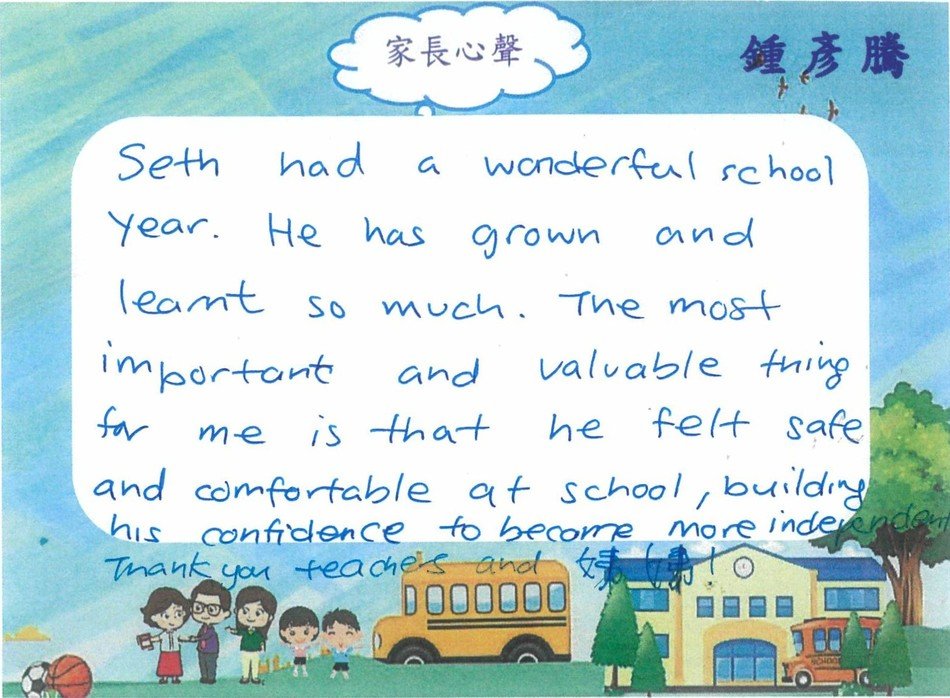 家長心聲
鍾彥騰
Seth had a wonderful school
year. He has grown and
learnt so much. The most
important and valuable thing
for me is that he felt safe
and comfortable at school, building
his confidence to become more independent
Thank you teachers and 姨姨!
SCHOOL